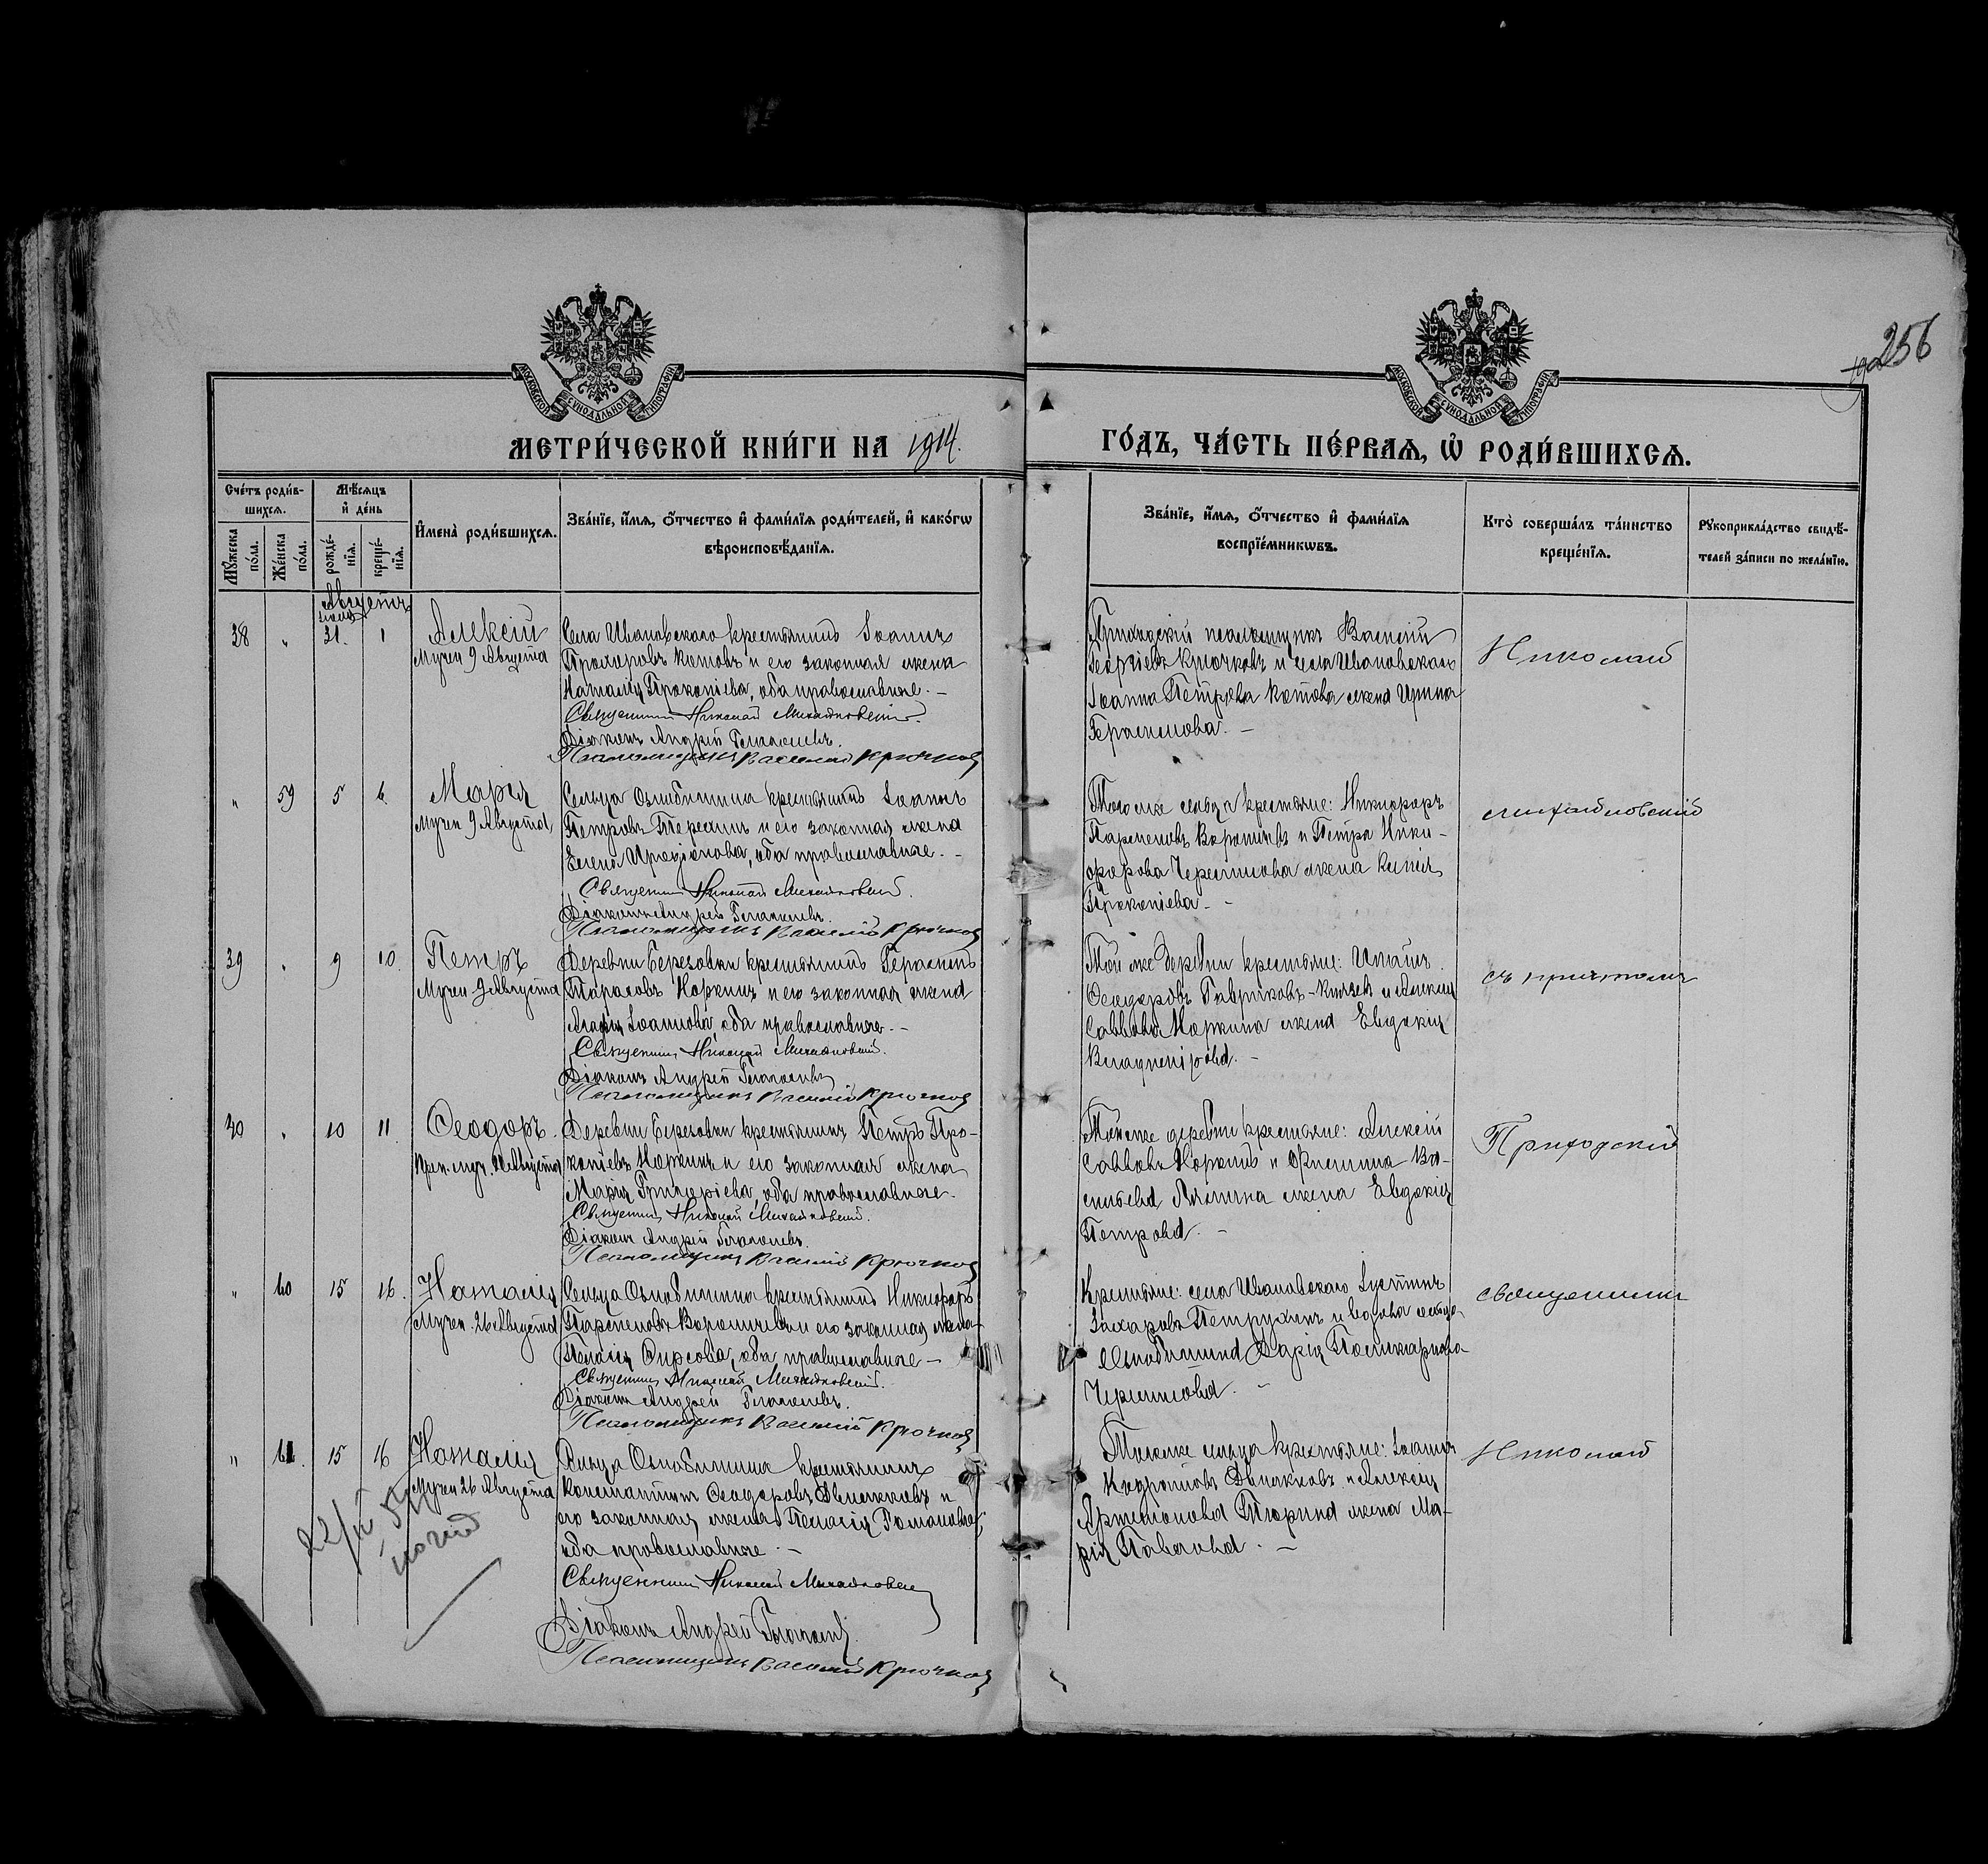 256
МОСКОВСКОЙ СУНОДАЛЬНОЙ ТИПОГРАФІИ
МОСКОВСКОЙ СУНОДАЛЬНОЙ ТИПОГРАФІИ
МЕТРИ́ЧЕСКОЙ КНИ́ГИ НА 1914.
ГО́ДЪ, ЧА́СТЬ ПЕ́РВАѦ, Ѽ РОДИ́ВШИХСѦ.
Сче́тъ роди́в-
шихсѧ.
Мꙋ́жеска по́ла.
Же́нска по́ла.
Мѣ́сѧцъ
и҆ де́нь
рожде́-
нїѧ.
креще́-
нїѧ.
И҆мена̀ роди́вшихсѧ.
Зва́нїе, и҆́мѧ, ѻ҆́тчество и҆ фами́лїѧ роди́телей, и҆ како́гѡ
вѣроисповѣ́данїѧ.
Зва́нїе, и҆́мѧ, ѻ҆́тчество и҆ фами́лїѧ
воспрїе́мникѡвъ.
Кто̀ соверша́лъ та́инство
креще́нїѧ.
Рꙋкоприкла́дство свидѣ́-
телей за́писи по жела́нїю.
Августъ
38 " 31. 1
Алексій
Мучен 9 Августа
Села Ивановскаго крестьянинъ Іоаннъ
Прохоровъ Котовъ и его законная жена
Наталія Прокопіева, оба православные. –
Священникъ Николай Михайловскій.
Діаконъ Андрей Глаголевъ.
Псаломщикъ Василій Крючков
Приходскій псаломщикъ Василій
Георгіевъ Крючковъ и села Ивановскаго
Іоанна Петрова Котова жена Ирина
Герасимова. –
Николай
" 59 5 6.
Марія
Мучен 9 Августа
Сельца Ознобишина крестьянинъ Іоаннъ
Петровъ Терехинъ и его законная жена
Елена Иродіонова, оба православные. –
Священникъ Николай Михайловскій.
Діаконъ Андрей Глаголевъ.
Псаломщикъ Василій Крючков
Того же сельца крестьяне: Никифоръ
Парменовъ Воротиловъ и Петра Ники-
форова жена
Прокопіева. –
Михайловскій
39 " 9 10.
Петръ
Мучен 9 Августа
Деревни Березовки крестьянинъ Герасимъ
Тарасовъ Норкинъ и его законная жена
Агафія Іоаннова, оба православные. –
Священникъ Николай Михайловскій.
Діаконъ Андрей Глаголевъ
Псаломщикъ Василій Крючков
Той же деревни крестьяне: Игнатій
Ѳеодоровъ Гавриковъ-Князевъ и Алексія
Саввова Норкина жена Евдокія
Владимірова. –
съ причтомъ
40 " 10 11.
Ѳеодоръ.
Деревни Березовки крестьянинъ Петръ Про-
копіевъ Норкинъ и его законная жена
Марія Григоріева, оба православные.
Священникъ Николай Михайловскій.
Діаконъ Андрей Глаголевъ.
Псаломщикъ Василій Крючков
Той же деревни крестьяне: Алексій
Саввовъ Норкинъ и Филиппа Ва-
сильева жена Евдокія
Петрова. –
Приходскій
" 60 15 16.
Наталія
Мучен. 26 Августа
Сельца Ознобишина крестьянинъ Никифоръ
Парменовъ Воротиловъ и его законная жена
Пелагія Ѳирсова, оба православные –
Священникъ Николай Михайловскій.
Діаконъ Андрей Глаголевъ.
Псаломщикъ Василій Крючков
Крестьяне: села Ивановскаго Іустинъ
Захаровъ Петрухинъ и вдова сельца
Ознобишина Дарія Поликарпова
священникъ
" 61. 15 16
Наталія
Мучен 26 Августа
Сельца Ознобишина крестьянинъ
Константинъ Ѳеодоровъ и
его законная жена Пелагія Романова,
оба православные. –
Священникъ Николай Михайловскій
Діаконъ Андрей Глаголевъ.
Псаломщикъ Василій Крючков
Того же сельца крестьяне: Іоаннъ
и Алексія
Артемонова Тюрина жена Ма-
рія Павлова. –
Николай